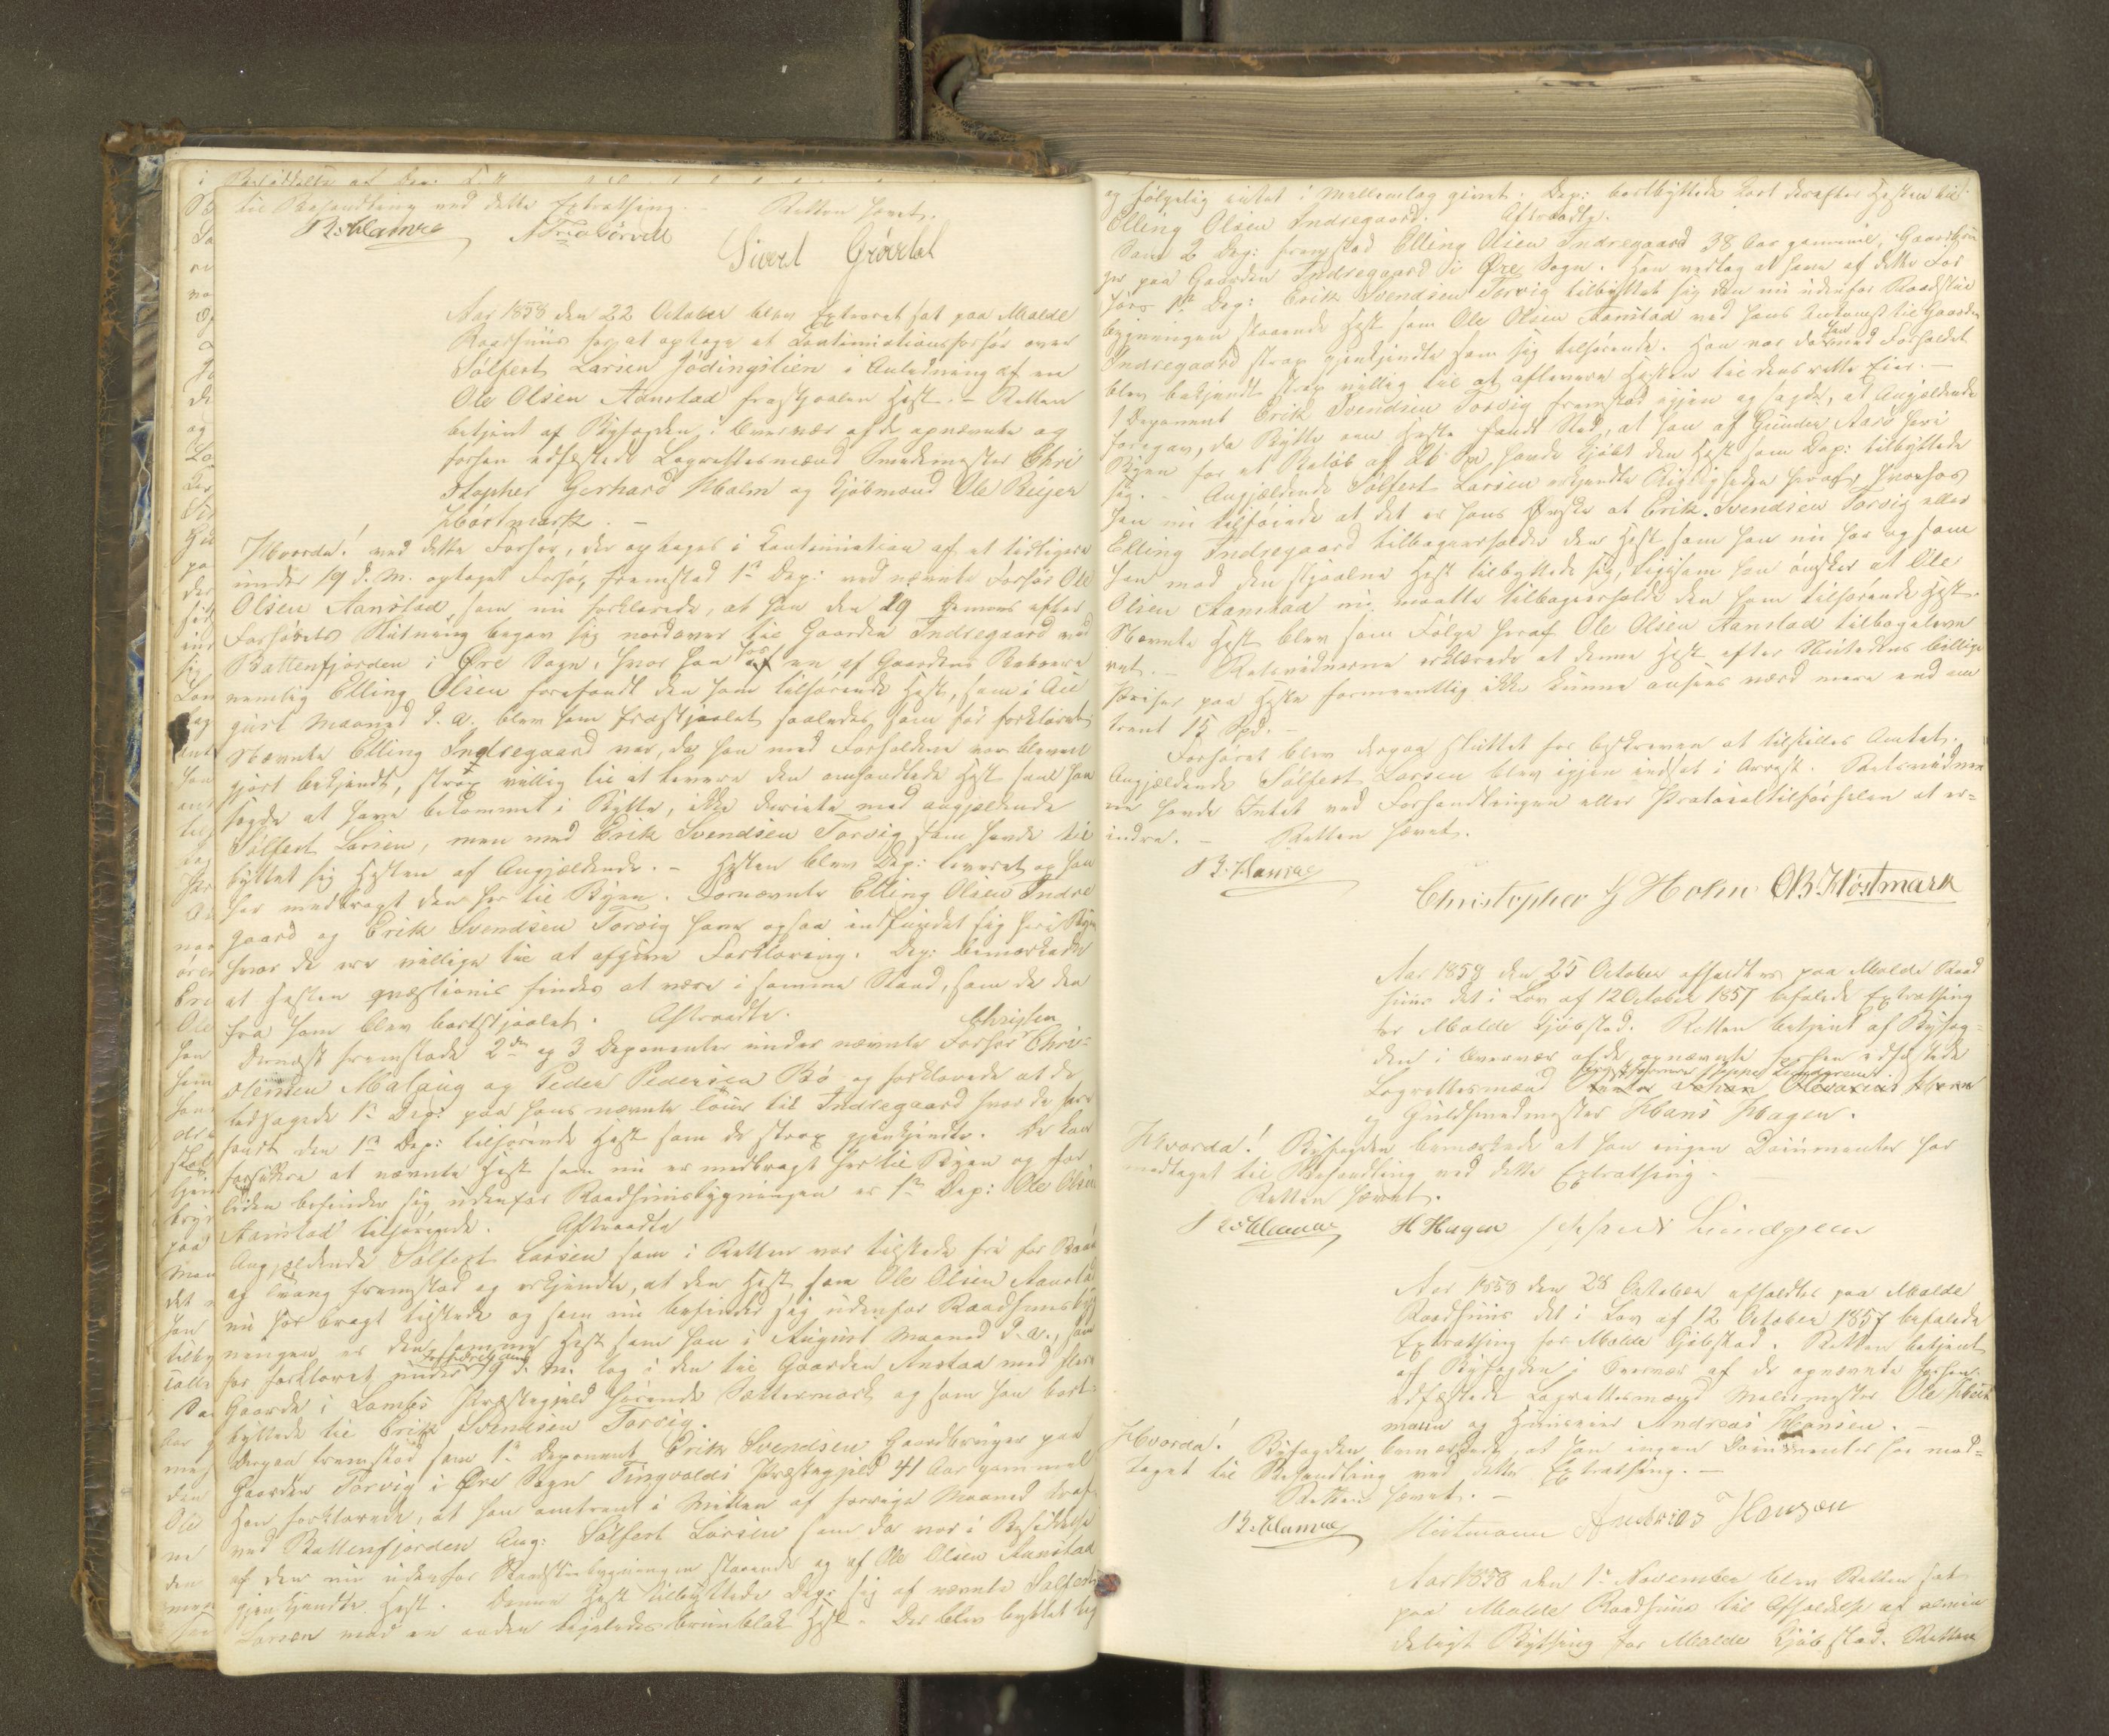 til Behandling ved dette Extrathing. Retten hævet.
Sivert Grøvdal
Aar 1858 den 22 October blev Extraret sat paa Molde
Raadhuus for at optage et Continuationsforhør over
Sølfest Larsen Jødingslien i Anledning af en
Ole Olsen Aanstad frastjaalen Hest. – Retten
betjent af Byfogden i Overvær af de opnævnte og
forhen edfæstede Lagrettesmænd Smedemester Chri
stopher Gerhard Holm og Kjøbmand Ole Beyer
Høstmark. –
Hvorda! ved dette Forhør, der optages i Continuation af et tidligere
under 19 d. M. optaget Forhør, fremstod 1ste Dep: ved nævnte Forhør Ole
Olsen Aanstad, som nu forklarede, at han den 19 hujus efter
Forhørets Slutning begav sig nordover til Gaarden Indregaard ved
Battenfjorden i Øre Sogn, hvor han hos en af Gaardens Beboere
nemlig Elling Olsen forefandt den ham tilhørende Hest, som i Au
gust Maaned d. A. blev ham frastjaalet saaledes som før forklaret.
Nævnte Elling Indregaard var, da han med Forholdene var bleven
gjort bekjendt, strax villig til at levere den omhandlede Hest som han
sagde at have bekommet i Bytte, ikke directe med angjældende
Sølfest Larsen, men med Erik Svendsen Torvig, som havde til
byttet sig Hesten af Angjældende. – Hesten blev Dep: leveret og han
har medbragt den her til Byen. Fornævnte Elling Olsen Indre
gaard og Erik Svendsen Torvig have ogsaa indfundet sig her i Byen
hvor de ere villige til at afgive Forklaring. Dep: bemærkede
at Hesten qvæstionis findes at være i samme Stand, som da den
fra ham blev bortstjaalet. Aftraadte.
Christen
Dernæst fremstode 2den og 3 Deponenter under nævnte Forhør Chri=
stensen Malaug og Peder Pedersen Bø og forklarede at de
ledsagede 1ste Dep: paa hans nævnte Tour til Indregaard hvor de fore
fandt den 1ste Dep: tilhørende Hest som de strax gjenkjendte. De kan
forsikkre at nævnte Hest som nu er medbragt her til Byen og for
tiden befinder sig udenfor Raadhuusbygningen er 1ste Dep: Ole Olsen
Aanstad tilhørende. Aftraadte
Angjældende Sølfest Larsen som i Retten var tilstede fri for Baand
og Tvang fremstod og erkjendte, at den Hest som Ole Olsen Aanstad
nu har bragt tilstede og som nu befinder sig udenfor Raadhuusbyg
ningen er den samme Hest som han i August Maaned d. A., som
før forklaret under 19 d. M. tog i den til Gaarden Anstad med flere
Gaarde i Lombs Præstegjeld hørende Sættermark og som han bort=
byttede til Erik Svendsen Torvig.
Derpaa fremstod som 1ste Deponent Erik Svendsen Gaardbruger paa
Gaarden Torvig i Øre Sogn Tingvolds Præstegjeld 41 Aar gammel
Han forklarede, at han omtrent i Midten af forrige Maaned traf
ved Battenfjorden Ang: Sølfest Larsen som da var i Besiddelse
af den nu udenfor Raadstuebygningen staaende og af Ole Olsen Aanstad
gjenkjendte Hest. Denne Hest tilbyttede Dep: sig af nævnte Sølfest
Larsen mod en anden ligeledes bruunblak Hest. Der blev byttet lig
og følgelig intet i Mellemlag givet. Dep: bortbyttede kort derefter Hesten til
Elling Olsen Indregaard. Aftraadte.
Som 2 Dep: fremstod Elling Olsen Indregaard 38 Aar gammel, Gaardbru
ger paa Gaarden Indregaard i Øre Sogn. Han vedtog at have af dette For
hørs 1ste Dep: Erik Svendsen Torvig tilbyttet sig den nu udenfor Raadstue
bygningen staaende Hest som Ole Olsen Aanstad ved hans Ankomst til Gaarden
Indregaard strax gjenkjendte som sig tilhørende. Han var da han med Forholdet
blev bekjendt strax villig til at aflevere Hesten til dens rette Eier. –
1 Deponent Erik Svendsen Torvig fremstod igjen og sagde, at Angjældende
foregav, da Byttet om Heste fandt Sted, at han af Gunder Aarø her i
Byen for et Beløb af 26 Spd havde kjøbt den Hest som Dep: tilbyttede
sig. – Angjældende Sølfest Larsen erkjendte Rigtigheden heraf, hvorhos
han nu tilføiede at det er hans Ønske at Erik Svendsen Torvig eller
Elling Indregaard tilbageerholder den Hest som han nu har og som
han mod den stjaalne Hest tilbyttede sig, ligesom han ønsker at Ole
Olsen Aanstad nu maatte tilbageerholde den ham tilhørende Hest.
Nævnte Hest blev som Følge heraf Ole Olsen Aanstad tilbageleve
ret. – Retsvidnerne erklærede at denne Hest efter Nutidens billige
Priser paa Heste formeentlig ikke kunne ansees værd mere end om
trent 15 Spd. –
Forhøret blev derpaa sluttet for beskreven at tilstilles Amtet.
Angjældende Sølfest Larsen blev igjen indsat i Arrest. Retsvidner
ne havde Intet ved Forhandlingen eller Protocoltilførselen at er=
indre. – Retten hævet.
Christopher G Holm OB. Høstmark
Aar 1858 den 25 October afholdtes paa Molde Raad
huus det i Lov af 12 October 1857 befalede Extrathing
for Molde Kjøbstad. Retten betjent af Byfog=
den i Overvær af de opnævnte forhen edfæstede
Lagrettesmænd
og Guldsmedmester Hans Hagen.
Hvorda! Byfogden bemærkede at han ingen Documenter har
modtaget til Behandling ved dette Extrathing.
Retten hævet.
H Hagen Lundgreen
Aar 1858 den 28 October afholdtes paa Molde
Raadhuus det i Lov af 12 October 1857 befalede
Extrathing for Molde Kjøbstad. Retten betjent
af Byfogden i Overvær af de opnævnte forhen
edfæstede Lagrettesmænd Malermester Ole
mann og Huuseier Andreas Hansen. –
Hvorda! Byfogden bemærkede, at han ingen Documenter har mod=
taget til Behandling ved dette Extrathing. –
Retten hævet. –
Andreas Hansen
Aar 1858 den 1ste November blev Retten sat
paa Molde Raadhuus til Afholdelse af almin
deligt Bything for Molde Kjøbstad. Retten